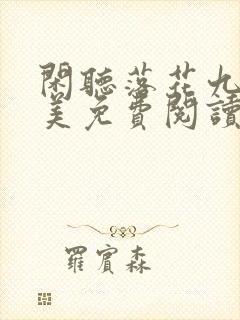 閑聽落花九
美免費閱讀
羅賓森